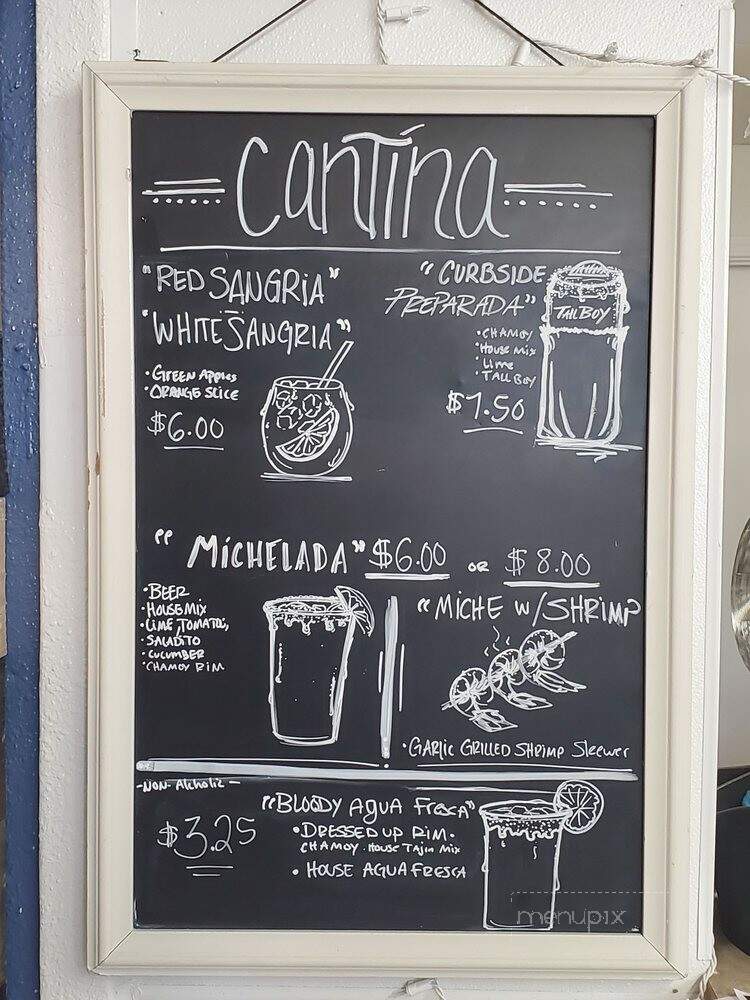 Cantina
"RED SANGRIA"
"WHITE SANGRIA"
• GREEN APPles
• ORANGE SLICE
$6.00
"CURBSIDE
PREPARADA"
TALL BOY
• CHAMOY
• House Mix
• Lime
• TALL BOY
$7.50
"MICHELADA" $6.00 OR $8.00
• BEER
• HOUSE MIX
• LIME, TOMATOE,
• SALADITO
• CUCUMBER
• CHAMOY RIM
"MICHE W/SHRIMP
• GARLIC GRILLED SHRIMP Skewer
-NON-Alcholic-
$3.25
"BLOODY AGUA FRESCA"
• DRESSED UP RIM.
CHAMOY. HOUSE TAJIN MIX
• HOUSE AGUA FRESCA
menupix